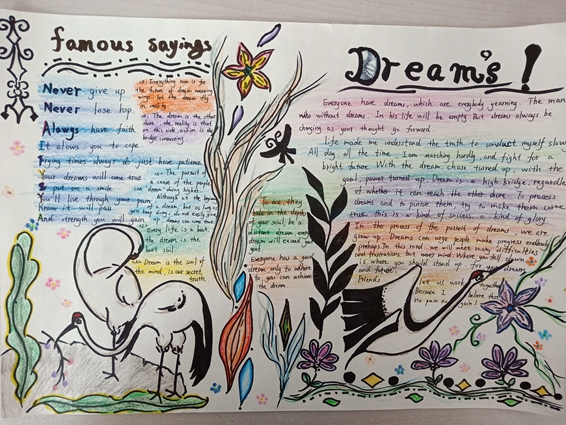 famous sayings
Never give up
Never lose hop
Always have faith
It alows you to cope
Trying times always do just have patience
Your dreams will come true
put on a smile
You'll live through your pain
Know it all pass
And strength you will gain
Everything now is for
the future of dream weaving
wings let the dream fly
in reality
The dream is the other
shore the reality is that
The pursuit
of some of the people
Every life is a book
the dream is the
book's soul
Dream is the soul of
the mind, is our secret
truth
To me, they
hide in the depth
of your soul, be a
distant dream every
dream will exceed your
goal
Everyone has a good
dream only to adhere
to you can achieve
the dream
Dream's!
Everyone have dreams, which are everybody yearning. The man
who without dreams. In his life will be empty. But dreams always be
changing as your thought go forward.
Life made me understand the truth to conduct myself slow
All day all the time I am searching hardly and fight for a
bright future. With the dream chase turned up, with the
goal, power turned up. Dream is a high bridge, regardless
of whether it can reach the other shore. To process
dreams and to pursue, try to make them come
true, this is a kind of success, a kind of glory.
In the process of the pursuit of dreams we are
grow up. Dreams can urge people make progress endlessly
perhaps in this road, will meet many difficulties
and frustrations, but must mind. Where you fall down
is where you should stand up for your dream
and future.
Friends let us work together
Because I believe that
No pain no again!